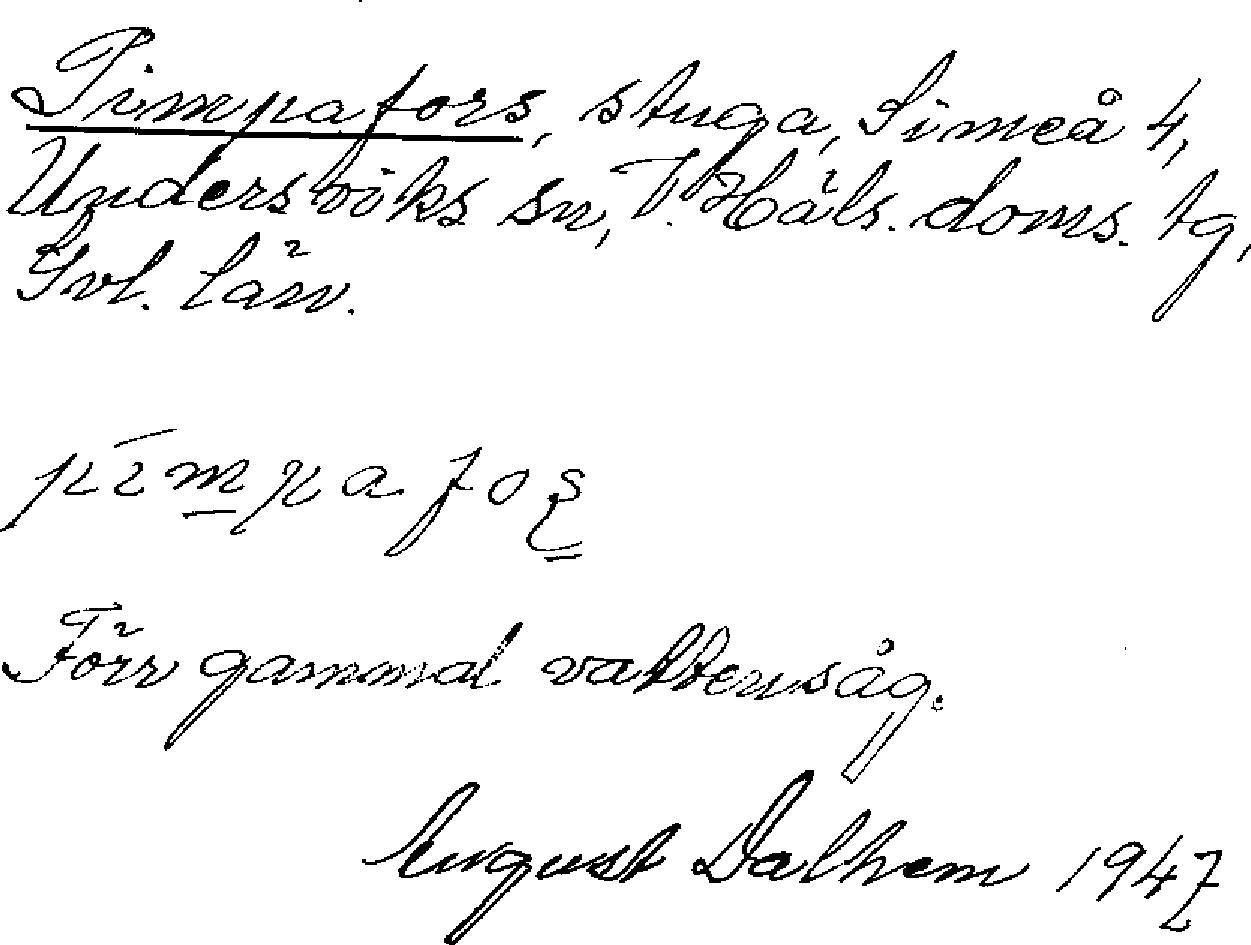 Pimpafors, stuga, Simeå 4,
Undersviks sn, V. Häls. doms. tg,
Gvl. län.
pīmpafoș
Förr gammal vattensåg.
August Dalhem 1947